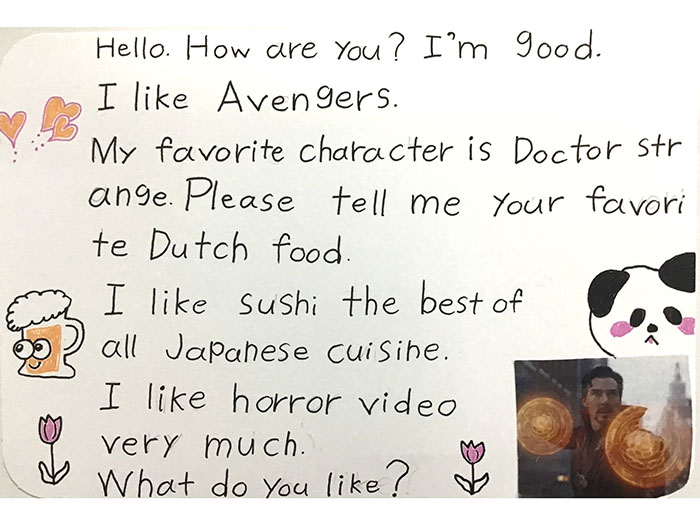 Hello. How are you? I'm good.
I like Avengers.
My favorite character is Doctor str
ange. Please tell me your favori
te Dutch food.
I like sushi the best of
all Japanese cuisine.
I like horror video
very much.
What do you like?